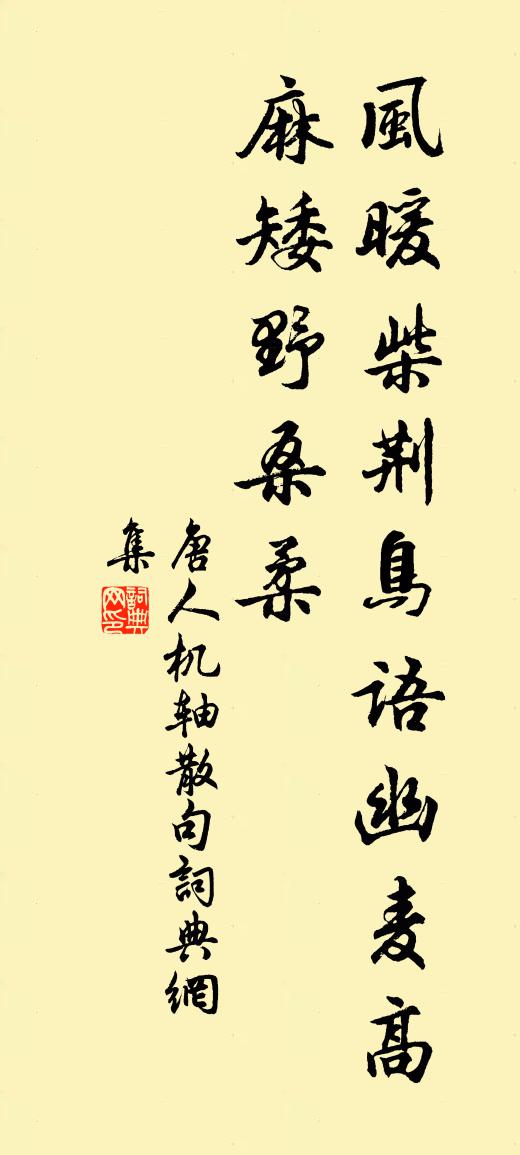 風暖柴荆鳥語幽麦高
麻矮野桑柔
唐人机軸散句詞典網
集
詞典
网印